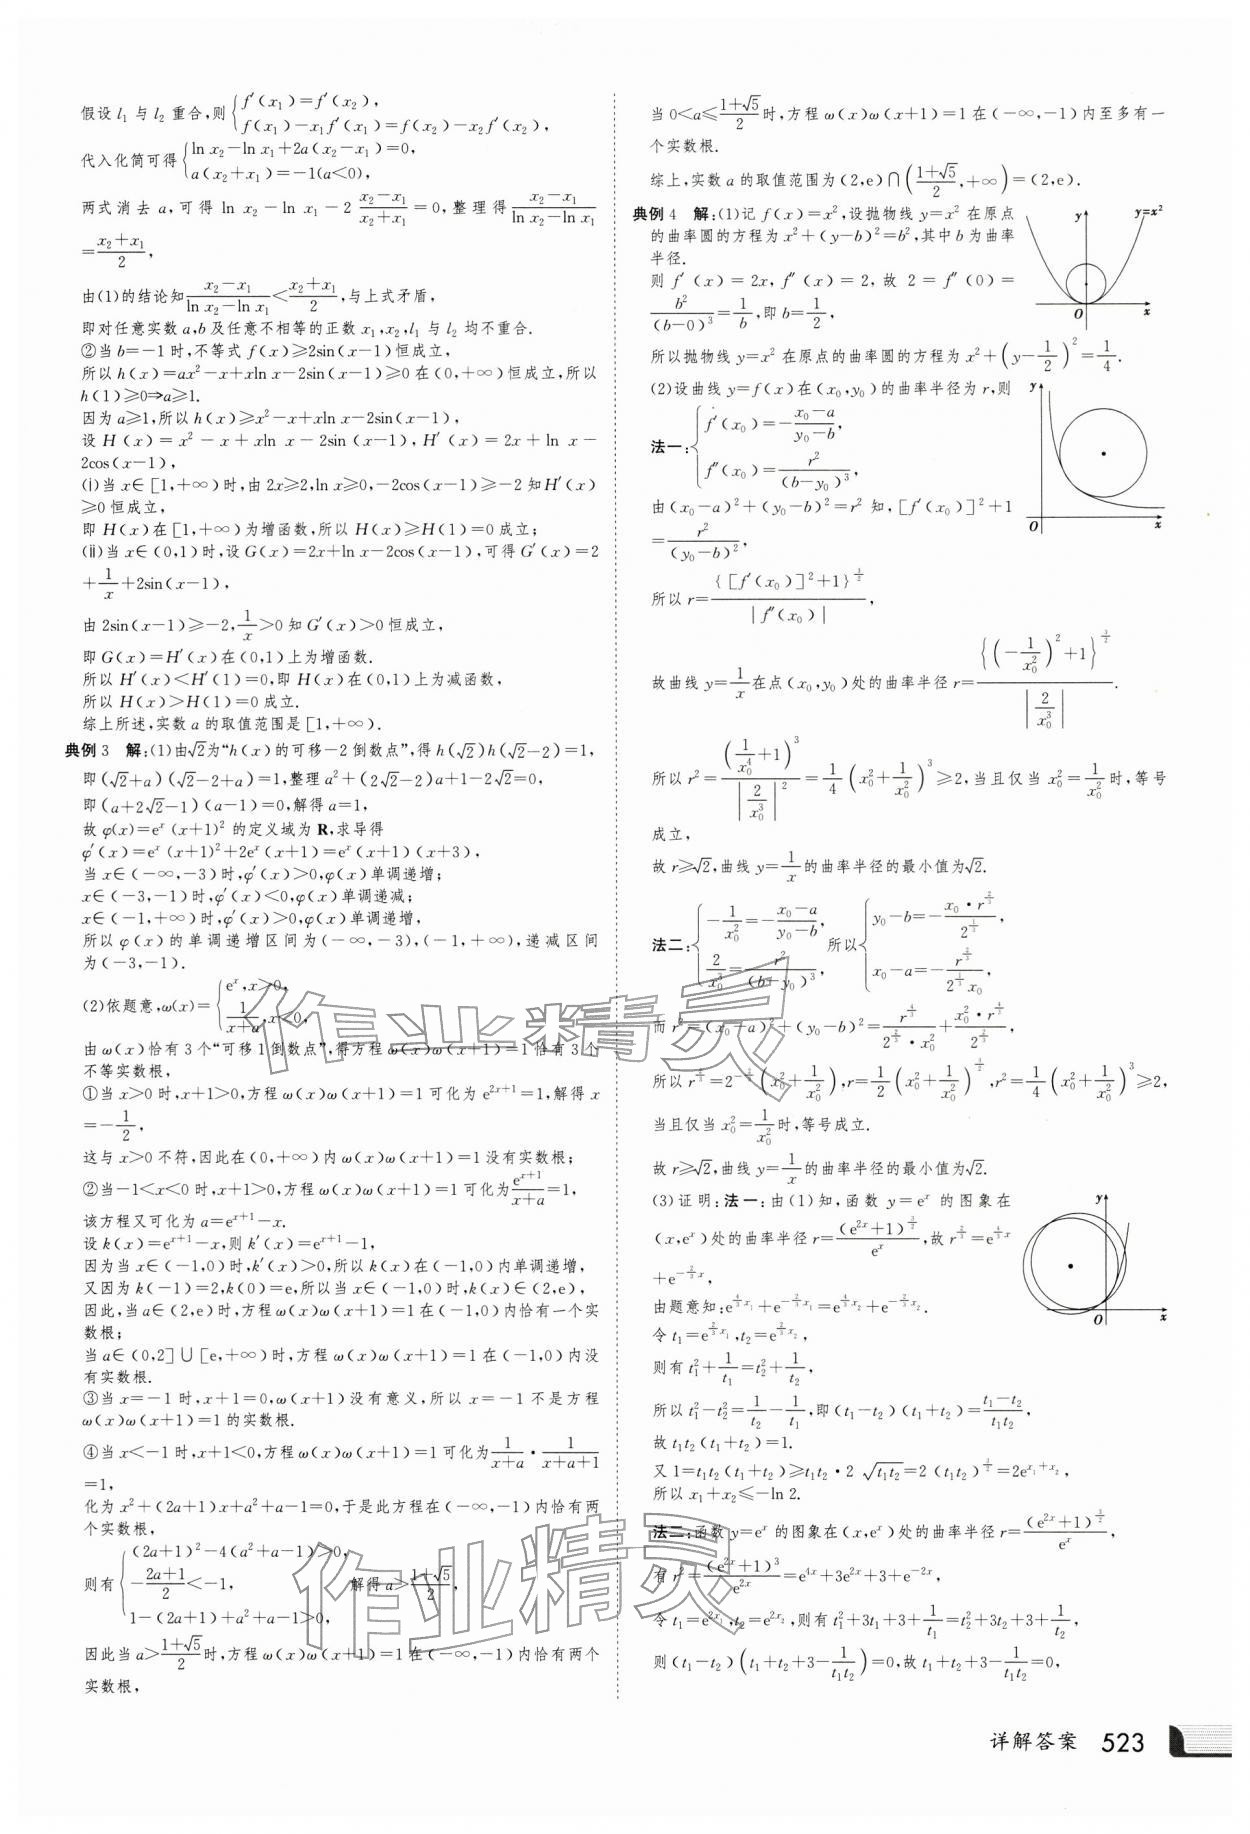 假设 l₁ 与 l₂ 重合,则{f′(x₁)=f′(x₂), f(x₁)-x₁f′(x₁)=f(x₂)-x₂f′(x₂),
代入化简可得{ln x₂-ln x₁+2a(x₂-x₁)=0, a(x₂+x₁)=-1(a<0),
两式消去 a,可得 ln x₂-ln x₁-2 (x₂-x₁)/(x₂+x₁)=0,整理得(x₂-x₁)/(ln x₂-ln x₁)
=(x₂+x₁)/2,
由(1)的结论知(x₂-x₁)/(ln x₂-ln x₁)<(x₂+x₁)/2,与上式矛盾,
即对任意实数 a,b 及任意不相等的正数 x₁,x₂,l₁ 与 l₂ 均不重合.
②当 b=-1 时,不等式 f(x)≥2sin(x-1)恒成立,
所以 h(x)=ax²-x+xln x-2sin(x-1)≥0 在(0,+∞)恒成立,所以
h(1)≥0⇒a≥1.
因为 a≥1,所以 h(x)≥x²-x+xln x-2sin(x-1),
设 H(x)=x²-x+xln x-2sin(x-1),H′(x)=2x+ln x-
2cos(x-1),
(ⅰ)当 x∈[1,+∞)时,由 2x≥2,ln x≥0,-2cos(x-1)≥-2 知 H′(x)
≥0 恒成立,
即 H(x)在[1,+∞)为增函数,所以 H(x)≥H(1)=0 成立;
(ⅱ)当 x∈(0,1)时,设 G(x)=2x+ln x-2cos(x-1),可得 G′(x)=2
+1/x+2sin(x-1),
由 2sin(x-1)≥-2,1/x>0 知 G′(x)>0 恒成立,
即 G(x)=H′(x)在(0,1)上为增函数.
所以 H′(x)<H′(1)=0,即 H(x)在(0,1)上为减函数,
所以 H(x)>H(1)=0 成立.
综上所述,实数 a 的取值范围是[1,+∞).
典例 3 解:(1)由√2为“h(x)的可移-2 倒数点”,得 h(√2)h(√2-2)=1,
即(√2+a)(√2-2+a)=1,整理 a²+(2√2-2)a+1-2√2=0,
即(a+2√2-1)(a-1)=0,解得 a=1,
故 φ(x)=eˣ(x+1)² 的定义域为 R,求导得
φ′(x)=eˣ(x+1)²+2eˣ(x+1)=eˣ(x+1)(x+3),
当 x∈(-∞,-3)时,φ′(x)>0,φ(x)单调递增;
x∈(-3,-1)时,φ′(x)<0,φ(x)单调递减;
x∈(-1,+∞)时,φ′(x)>0,φ(x)单调递增,
所以 φ(x)的单调递增区间为(-∞,-3),(-1,+∞),递减区间
为(-3,-1).
(2)依题意,ω(x)={eˣ,x>0, 1/(x+a),x<0,
由 ω(x)恰有 3 个“可移 1 倒数点”,得方程 ω(x)ω(x+1)=1 恰有 3 个
不等实数根.
①当 x>0 时,x+1>0,方程 ω(x)ω(x+1)=1 可化为 e²ˣ⁺¹=1,解得 x
=-1/2,
这与 x>0 不符,因此在(0,+∞)内 ω(x)ω(x+1)=1 没有实数根;
②当-1<x<0 时,x+1>0,方程 ω(x)ω(x+1)=1 可化为 eˣ⁺¹/(x+a)=1,
该方程又可化为 a=eˣ⁺¹-x.
设 k(x)=eˣ⁺¹-x,则 k′(x)=eˣ⁺¹-1,
因为当 x∈(-1,0)时,k′(x)>0,所以 k(x)在(-1,0)内单调递增,
又因为 k(-1)=2,k(0)=e,所以当 x∈(-1,0)时,k(x)∈(2,e),
因此,当 a∈(2,e)时,方程 ω(x)ω(x+1)=1 在(-1,0)内恰有一个实
数根;
当 a∈(0,2]∪[e,+∞)时,方程 ω(x)ω(x+1)=1 在(-1,0)内没
有实数根.
③当 x=-1 时,x+1=0,ω(x+1)没有意义,所以 x=-1 不是方程
ω(x)ω(x+1)=1 的实数根.
④当 x<-1 时,x+1<0,方程 ω(x)ω(x+1)=1 可化为1/(x+a)·1/(x+a+1)
=1,
化为 x²+(2a+1)x+a²+a-1=0,于是此方程在(-∞,-1)内恰有两
个实数根,
则有{(2a+1)²-4(a²+a-1)>0, -(2a+1)/2<-1, 1-(2a+1)+a²+a-1>0, 解得 a>(1+√5)/2,
因此当 a>(1+√5)/2时,方程 ω(x)ω(x+1)=1 在(-∞,-1)内恰有两个
实数根,
当 0<a≤(1+√5)/2时,方程 ω(x)ω(x+1)=1 在(-∞,-1)内至多有一
个实数根.
综上,实数 a 的取值范围为(2,e)∩((1+√5)/2,+∞)=(2,e).
典例 4 解:(1)记 f(x)=x²,设抛物线 y=x² 在原点
的曲率圆的方程为 x²+(y-b)²=b²,其中 b 为曲率
半径.
则 f′(x)=2x,f″(x)=2,故 2=f″(0)=
b²/(b-0)³=1/b,即 b=1/2,
y
y=x²
O
x
所以抛物线 y=x² 在原点的曲率圆的方程为 x²+(y-1/2)²=1/4.
(2)设曲线 y=f(x)在(x₀,y₀)的曲率半径为 r,则
法一:{f′(x₀)=-(x₀-a)/(y₀-b), f″(x₀)=r²/(b-y₀)³,
由(x₀-a)²+(y₀-b)²=r² 知,[f′(x₀)]²+1
=r²/(y₀-b)²,
y
O
x
所以 r={[f′(x₀)]²+1}^(3/2)/|f″(x₀)|,
故曲线 y=1/x在点(x₀,y₀)处的曲率半径 r={(-1/x₀²)²+1}^(3/2)/|2/x₀³|.
所以 r²=(1/x₀⁴+1)³/|2/x₀³|²=1/4(x₀²+1/x₀²)³≥2,当且仅当 x₀²=1/x₀²时,等号
成立,
故 r≥√2,曲线 y=1/x的曲率半径的最小值为√2.
法二:{-1/x₀²=-(x₀-a)/(y₀-b), 2/x₀³=r²/(b-y₀)³, 所以{y₀-b=-x₀·r^(2/3)/2^(1/3), x₀-a=-r^(2/3)/(2^(1/3)x₀),
而 r²=(x₀+a)²+(y₀-b)²=r^(4/3)/(2^(2/3)·x₀²)+x₀²·r^(4/3)/2^(2/3),
所以 r^(2/3)=2^(-2/3)(x₀²+1/x₀²),r=1/2(x₀²+1/x₀²)^(3/2),r²=1/4(x₀²+1/x₀²)³≥2,
当且仅当 x₀²=1/x₀²时,等号成立.
故 r≥√2,曲线 y=1/x的曲率半径的最小值为√2.
(3)证明:法一:由(1)知,函数 y=eˣ 的图象在
(x,eˣ)处的曲率半径 r=(e²ˣ+1)^(3/2)/eˣ,故 r^(2/3)=e^(4/3 x)
+e^(-2/3 x),
由题意知:e^(4/3 x₁)+e^(-2/3 x₁)=e^(4/3 x₂)+e^(-2/3 x₂).
令 t₁=e^(2/3 x₁),t₂=e^(2/3 x₂),
y
O
x
则有 t₁²+1/t₁=t₂²+1/t₂,
所以 t₁²-t₂²=1/t₂-1/t₁,即(t₁-t₂)(t₁+t₂)=(t₁-t₂)/(t₁t₂),
故 t₁t₂(t₁+t₂)=1.
又 1=t₁t₂(t₁+t₂)≥t₁t₂·2√(t₁t₂)=2(t₁t₂)^(3/2)=2e^(x₁+x₂),
所以 x₁+x₂≤-ln 2.
法二:函数 y=eˣ 的图象在(x,eˣ)处的曲率半径 r=(e²ˣ+1)^(3/2)/eˣ,
有 r²=(e²ˣ+1)³/e²ˣ=e⁴ˣ+3e²ˣ+3+e⁻²ˣ,
令 t₁=e^(2x₁),t₂=e^(2x₂),则有 t₁²+3t₁+3+1/t₁=t₂²+3t₂+3+1/t₂,
则(t₁-t₂)(t₁+t₂+3-1/(t₁t₂))=0,故 t₁+t₂+3-1/(t₁t₂)=0,
作业精灵
作业精灵
详解答案 523